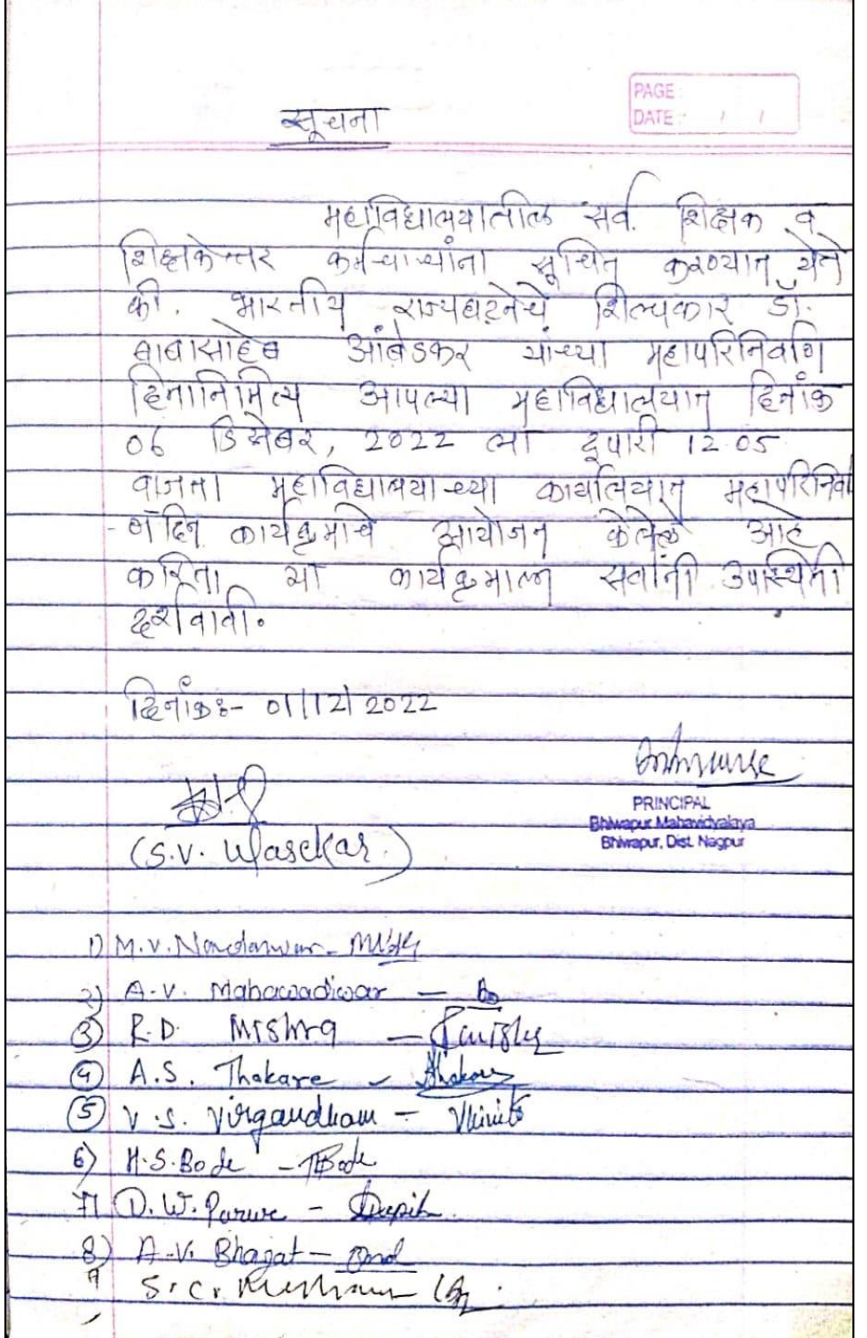 PAGE :
DATE : / /
सूचना
महाविद्यालयातील सर्व. शिक्षक व
शिक्षकेत्तर कर्मचाऱ्यांना सूचित करण्यात येते
की. भारतीय राज्यघटनेचे शिल्पकार डॉ.
बाबासाहेब आंबेडकर यांच्या महापरिनिर्वाण
दिनानिमित्य आपल्या महाविद्यालयात दिनांक
06 डिसेंबर, 2022 ला दुपारी 12.05
वाजता महाविद्यालयाच्या कार्यालयात महापरिनिर्वा
-ण दिन कार्यक्रमाचे आयोजन केलेले आहे
करिता या कार्यक्रमाला सर्वांनी उपस्थिती
दर्शवावी.
दिनांकः- 01/12/2022
PRINCIPAL
Bhiwapur Mahavidyalaya
Bhiwapur, Dist. Nagpur
(S.V. Wasekar.)
1) M.V. Nandanwar -
2) A.V. Mahawadiwar -
3) R.D. Mishra -
4) A.S. Thakare - Thakare
5) V.S. Virgandham -
6) H.S. Bode - Bode
7) D.W. Parwe -
8) A.V. Bhagat -
9 S.C.